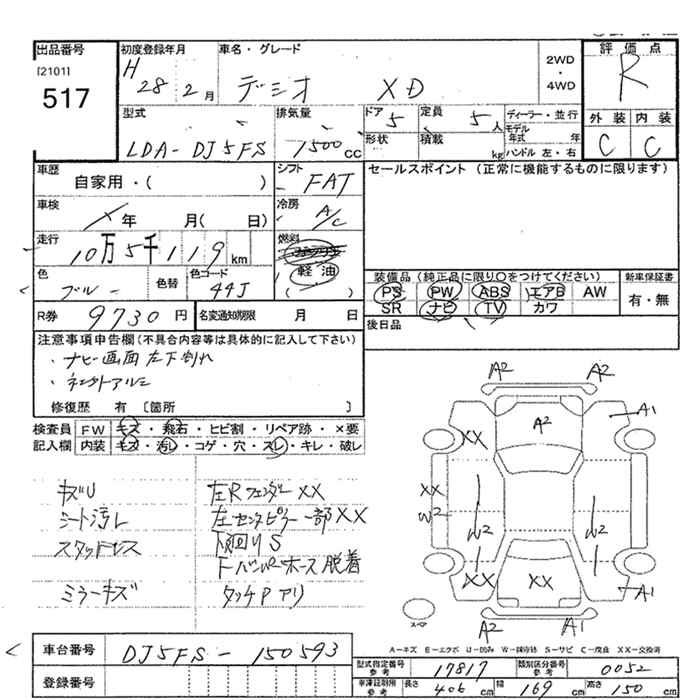 出品番号
[2101]
517
初度登録年月
H
28 2月
車名・グレード
デミオ XD
2WD
・
4WD
評価点
R
外装 内装
C C
型式
LDA-DJ5FS
排気量
1500cc
ドア 5
形状
定員 5人
積載 kg
ディーラー・並行
モデル年式 年
ハンドル 左・右
車歴
自家用・( )
シフト
FAT
車検
年 月( 日)
冷房
A/C
走行
10万5千119km
燃料
軽油
( )
色
ブルー
色替
色コード
44J
R券 9730円
名変通知期限 月 日
セールスポイント (正常に機能するものに限ります)
装備品 (純正品に限り○をつけてください)
PS PW ABS エアB AW
SR ナビ TV カワ
新車保証書
有・無
後日品
注意事項申告欄(不具合内容等は具体的に記入して下さい)
・ナビ画面左下割れ
修復歴 有 〔箇所 〕
検査員記入欄
FW キズ・飛石・ヒビ割・リペア跡・×要
内装 キズ・汚レ・コゲ・穴・スレ・キレ・破レ
シート汚レ
スタッドレス
ミラーキズ
左Rフェンダー XX
左センターピラー一部XX
下回りS
タッチPアリ
A2 A2
A2
A1
XX
XX
W2
W2 W2
XX XX
A1
A2 A2
スペア
A-キズ E-エクボ U-凹み W-補修跡 S-サビ C-腐食 XX-交換済
車台番号 DJ5FS-150593
登録番号
型式指定番号 参考 17817
類別区分番号 参考 0052
車庫証明用 参考 長さ 406cm 幅 169cm 高さ 150cm